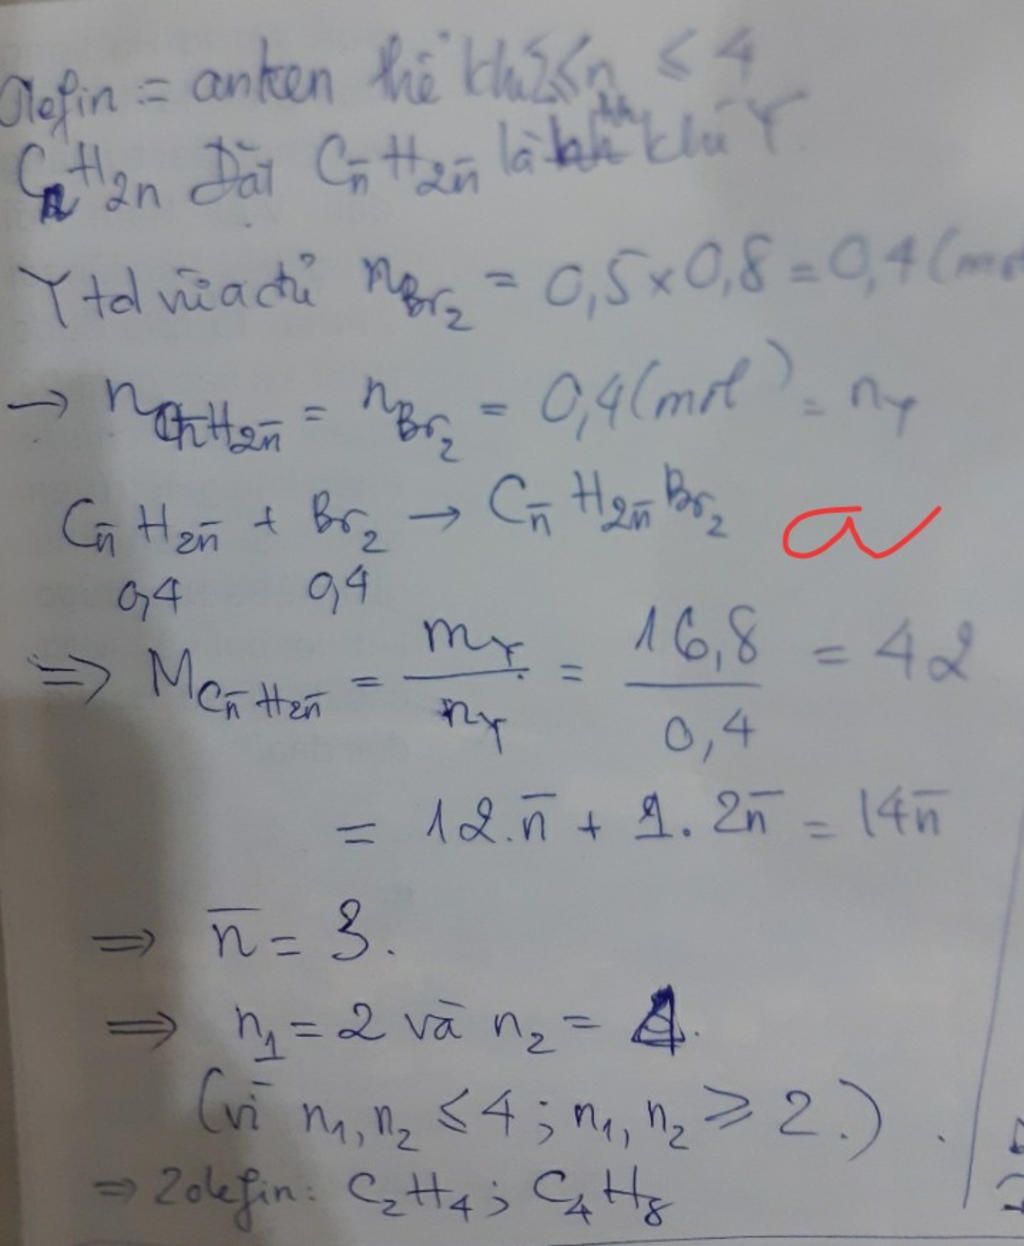 Olefin = anken thể khí 2 ≤ n ≤ 4
CnH2n Đặt Cn̄H2n̄ là hh khí Y
Y td vừa đủ nBr2 = 0,5 × 0,8 = 0,4 (mol
→ nCn̄H2n̄ = nBr2 = 0,4 (mol) = nY
Cn̄H2n̄ + Br2 → Cn̄H2n̄Br2 a
0,4 0,4
⇒ MCn̄H2n̄ = mY/nY = 16,8/0,4 = 42
= 12.n̄ + 1.2n̄ = 14n̄
⇒ n̄ = 3.
⇒ n1 = 2 và n2 = 4.
(vì n1, n2 ≤ 4; n1, n2 ≥ 2.)
⇒ 2 olefin: C2H4; C4H8